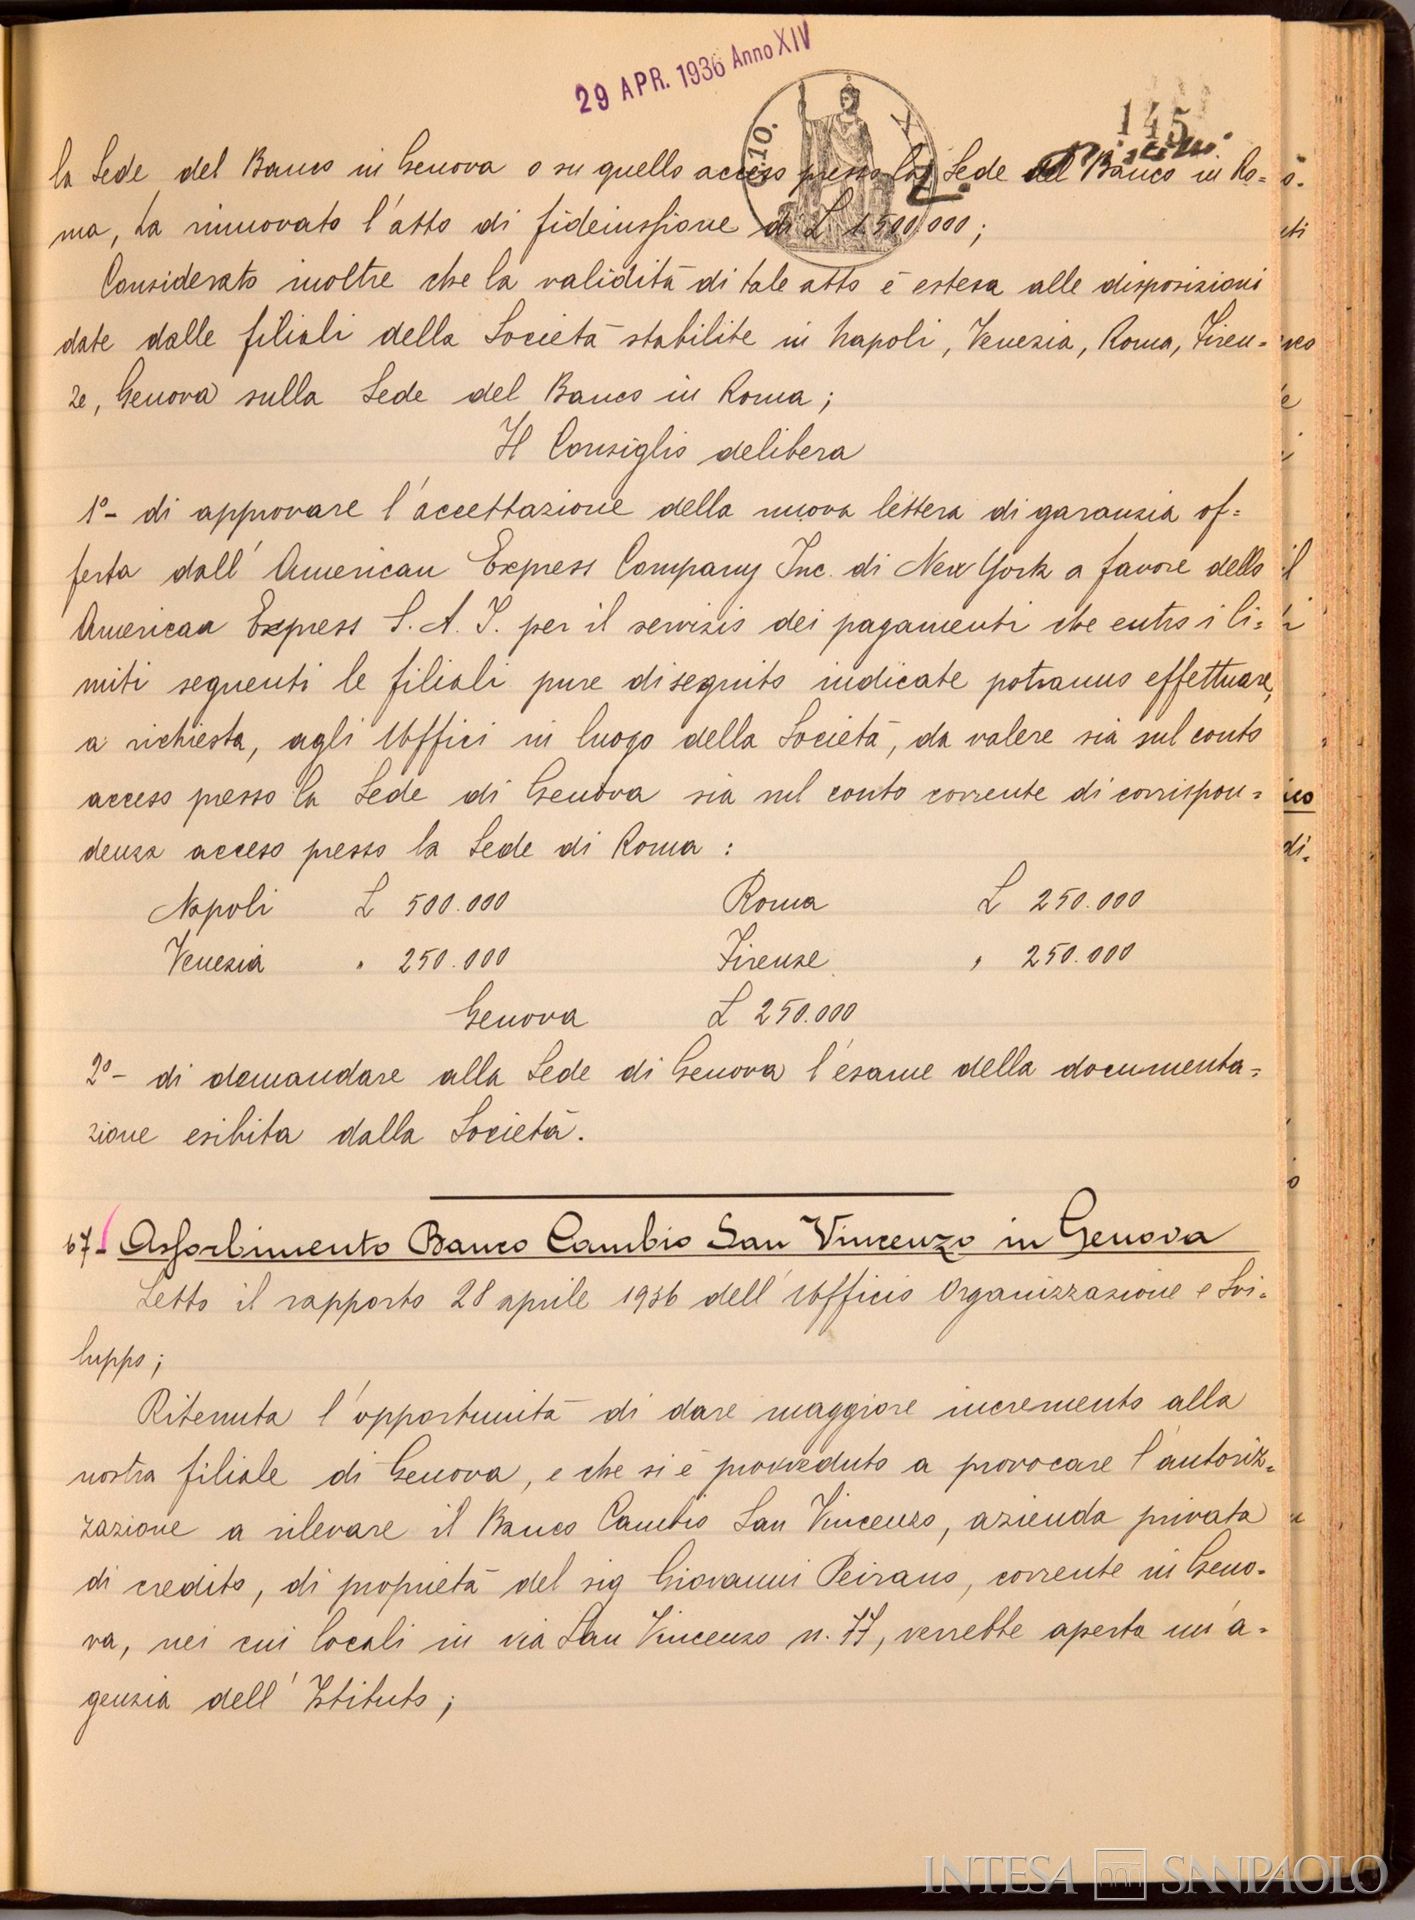 29 APR. 1936 Anno XIV
145
la Sede del Banco in Genova o su quello acceso presso la Sede del Banco in Ro=
ma, ha rinnovato l'atto di fideiussione di L 1.500.000;
Considerato inoltre che la validità di tale atto è estesa alle disposizioni
date dalle filiali della Società stabilite in Napoli, Venezia, Roma, Firen=
ze, Genova sulla Sede del Banco in Roma;
Il Consiglio delibera
1°- di approvare l'accettazione della nuova lettera di garanzia of=
ferta dall'American Express Company Inc. di New York a favore dello
American Express S. A. I. per il servizio dei pagamenti che entro i li=
miti seguenti le filiali pure diseguito indicate potranno effettuare,
a richiesta, agli Uffici in luogo della Società, da valere sia sul conto
acceso presso la Sede di Genova sia sul conto corrente di corrispon=
denza acceso presso la Sede di Roma:
Napoli L 500.000 Roma L 250.000
Venezia " 250.000 Firenze " 250.000
Genova L 250.000
2°- di demandare alla Sede di Genova l'esame della documenta=
zione esibita dalla Società.
67- Assorbimento Banco Cambio San Vincenzo in Genova
Letto il rapporto 28 aprile 1936 dell'Ufficio Organizzazione e Svi=
luppo;
Ritenuta l'opportunità di dare maggiore incremento alla
nostra filiale di Genova, e che si è provveduto a provocare l'autoriz=
zazione a rilevare il Banco Cambio San Vincenzo, azienda privata
di credito, di proprietà del sig Giovanni Peirano, corrente in Geno=
va, nei cui locali in via San Vincenzo n. 77, verrebbe aperta un'a=
genzia dell'Istituto;
INTESA SANPAOLO